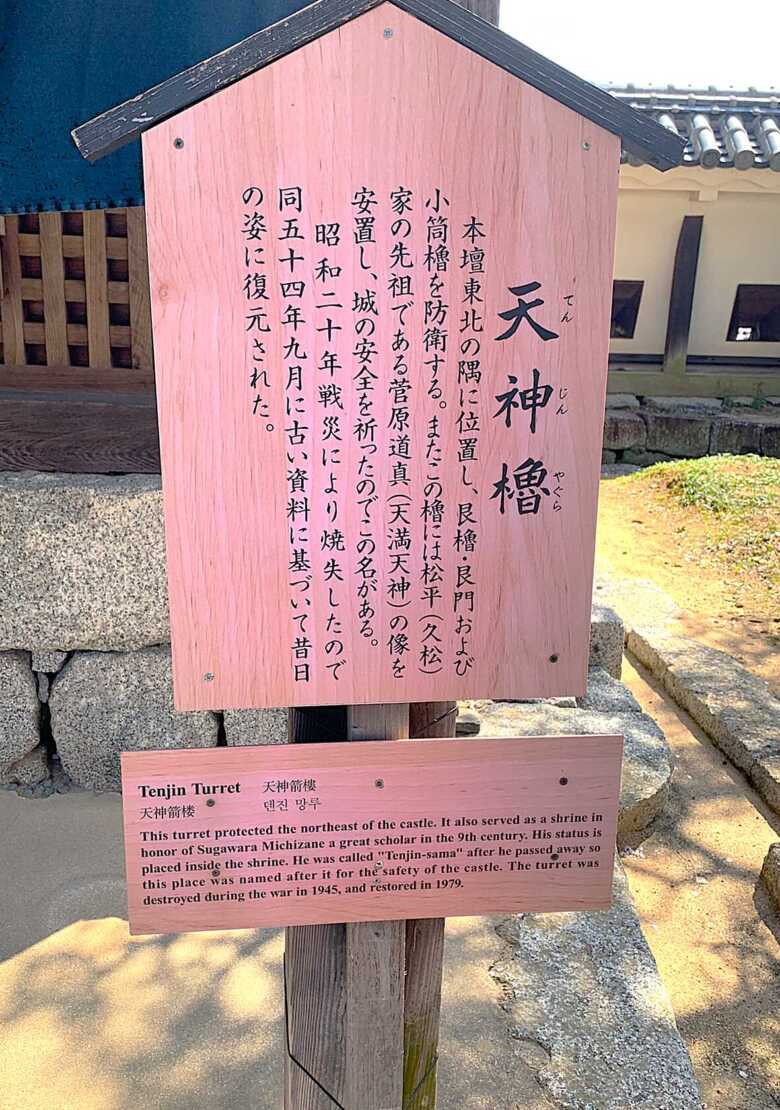 天神櫓
てんじんやぐら
本壇東北の隅に位置し、艮櫓・艮門および
小筒櫓を防衛する。またこの櫓には松平（久松）
家の先祖である菅原道真（天満天神）の像を
安置し、城の安全を祈ったのでこの名がある。
昭和二十年戦災により焼失したので
同五十四年九月に古い資料に基づいて昔日
の姿に復元された。
Tenjin Turret 天神箭樓
天神箭楼 덴진 망루
This turret protected the northeast of the castle. It also served as a shrine in
honor of Sugawara Michizane a great scholar in the 9th century. His status is
placed inside the shrine. He was called "Tenjin-sama" after he passed away so
this place was named after it for the safety of the castle. The turret was
destroyed during the war in 1945, and restored in 1979.